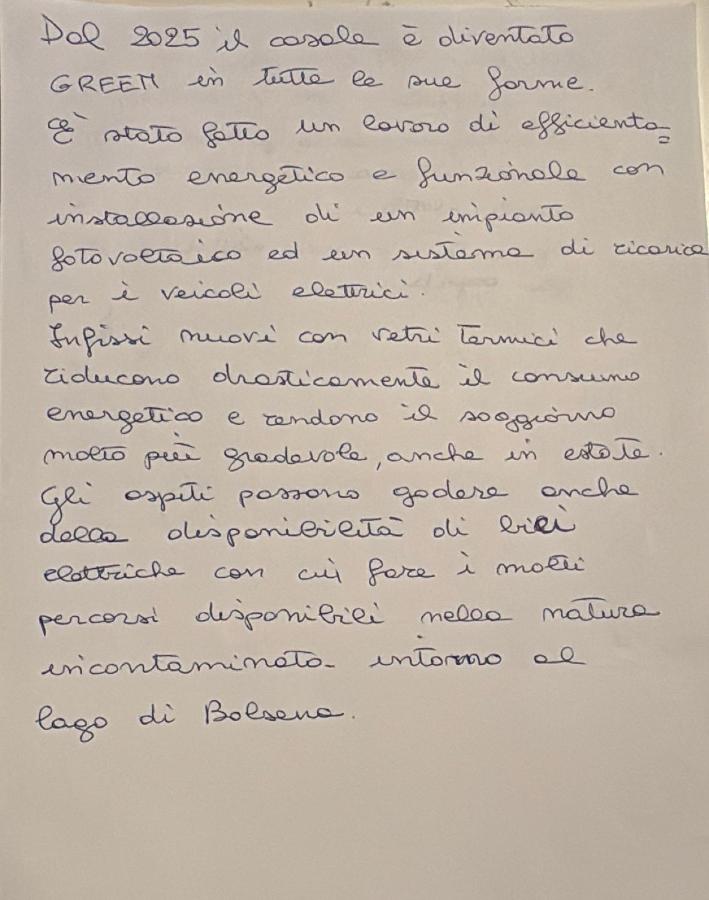 Dal 2025 il casale è diventato
GREEN in tutte le sue forme.
E' stato fatto un lavoro di efficienta=
mento energetico e funzionale con
installazione di un impianto
fotovoltaico ed un sistema di ricarica
per i veicoli elettrici.
Infissi nuovi con vetri termici che
riducono drasticamente il consumo
energetico e rendono il soggiorno
molto più gradevole, anche in estate.
Gli ospiti possono godere anche
della disponibilità di bici
elettriche con cui fare i molti
percorsi disponibili nella natura
incontaminata intorno al
lago di Bolsena.